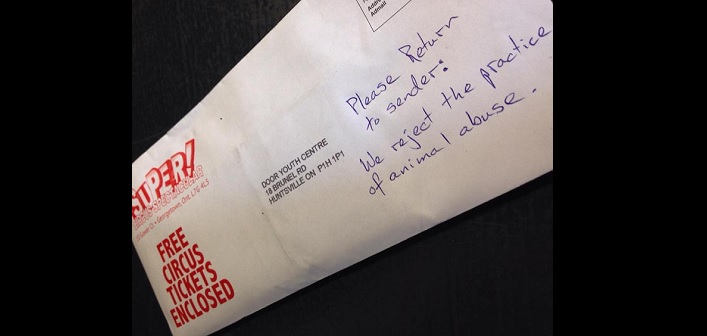 Addre
Admail
Please Return
to sender:
We reject the practice
of animal abuse.
DOOR YOUTH CENTRE
18 BRUNEL RD
HUNTSVILLE ON P1H 1P1
SUPER!
Georgetown, Ont. L7G 4L5
FREE
CIRCUS
TICKETS
ENCLOSED